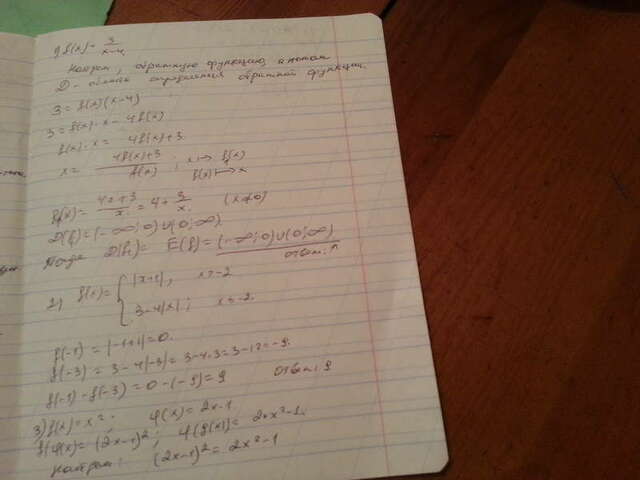 1) f(x) = 3/(x-4)
Найдем, обратную функцию, а потом
D - область определения обратной функции.
3 = f(x)(x-4)
3 = f(x)·x - 4f(x)
f(x)·x = 4f(x)+3
x = (4f(x)+3)/f(x) ; x → f(x) f(x) → x
g(x) = (4x+3)/x = 4 + 3/x (x≠0)
D(g) = (-∞; 0) ∪ (0; ∞)
D(g) = E(f) = (-∞; 0) ∪ (0; ∞)
2) f(x) = { |x+1|, x>-2
3-4|x|; x≤-2.
f(-1) = |-1+1| = 0.
f(-3) = 3-4|-3| = 3-4·3 = 3-12 = -9.
f(-1) - f(-3) = 0-(-9) = 9 Ответ: 9
3) f(x) = x². φ(x) = 2x-1.
f(φ(x)) = (2x-1)²; φ(f(x)) = 2x²-1.
(2x-1)² = 2x²-1